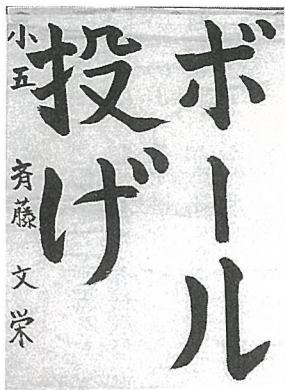 ボール
投げ
小五 斉藤 文栄